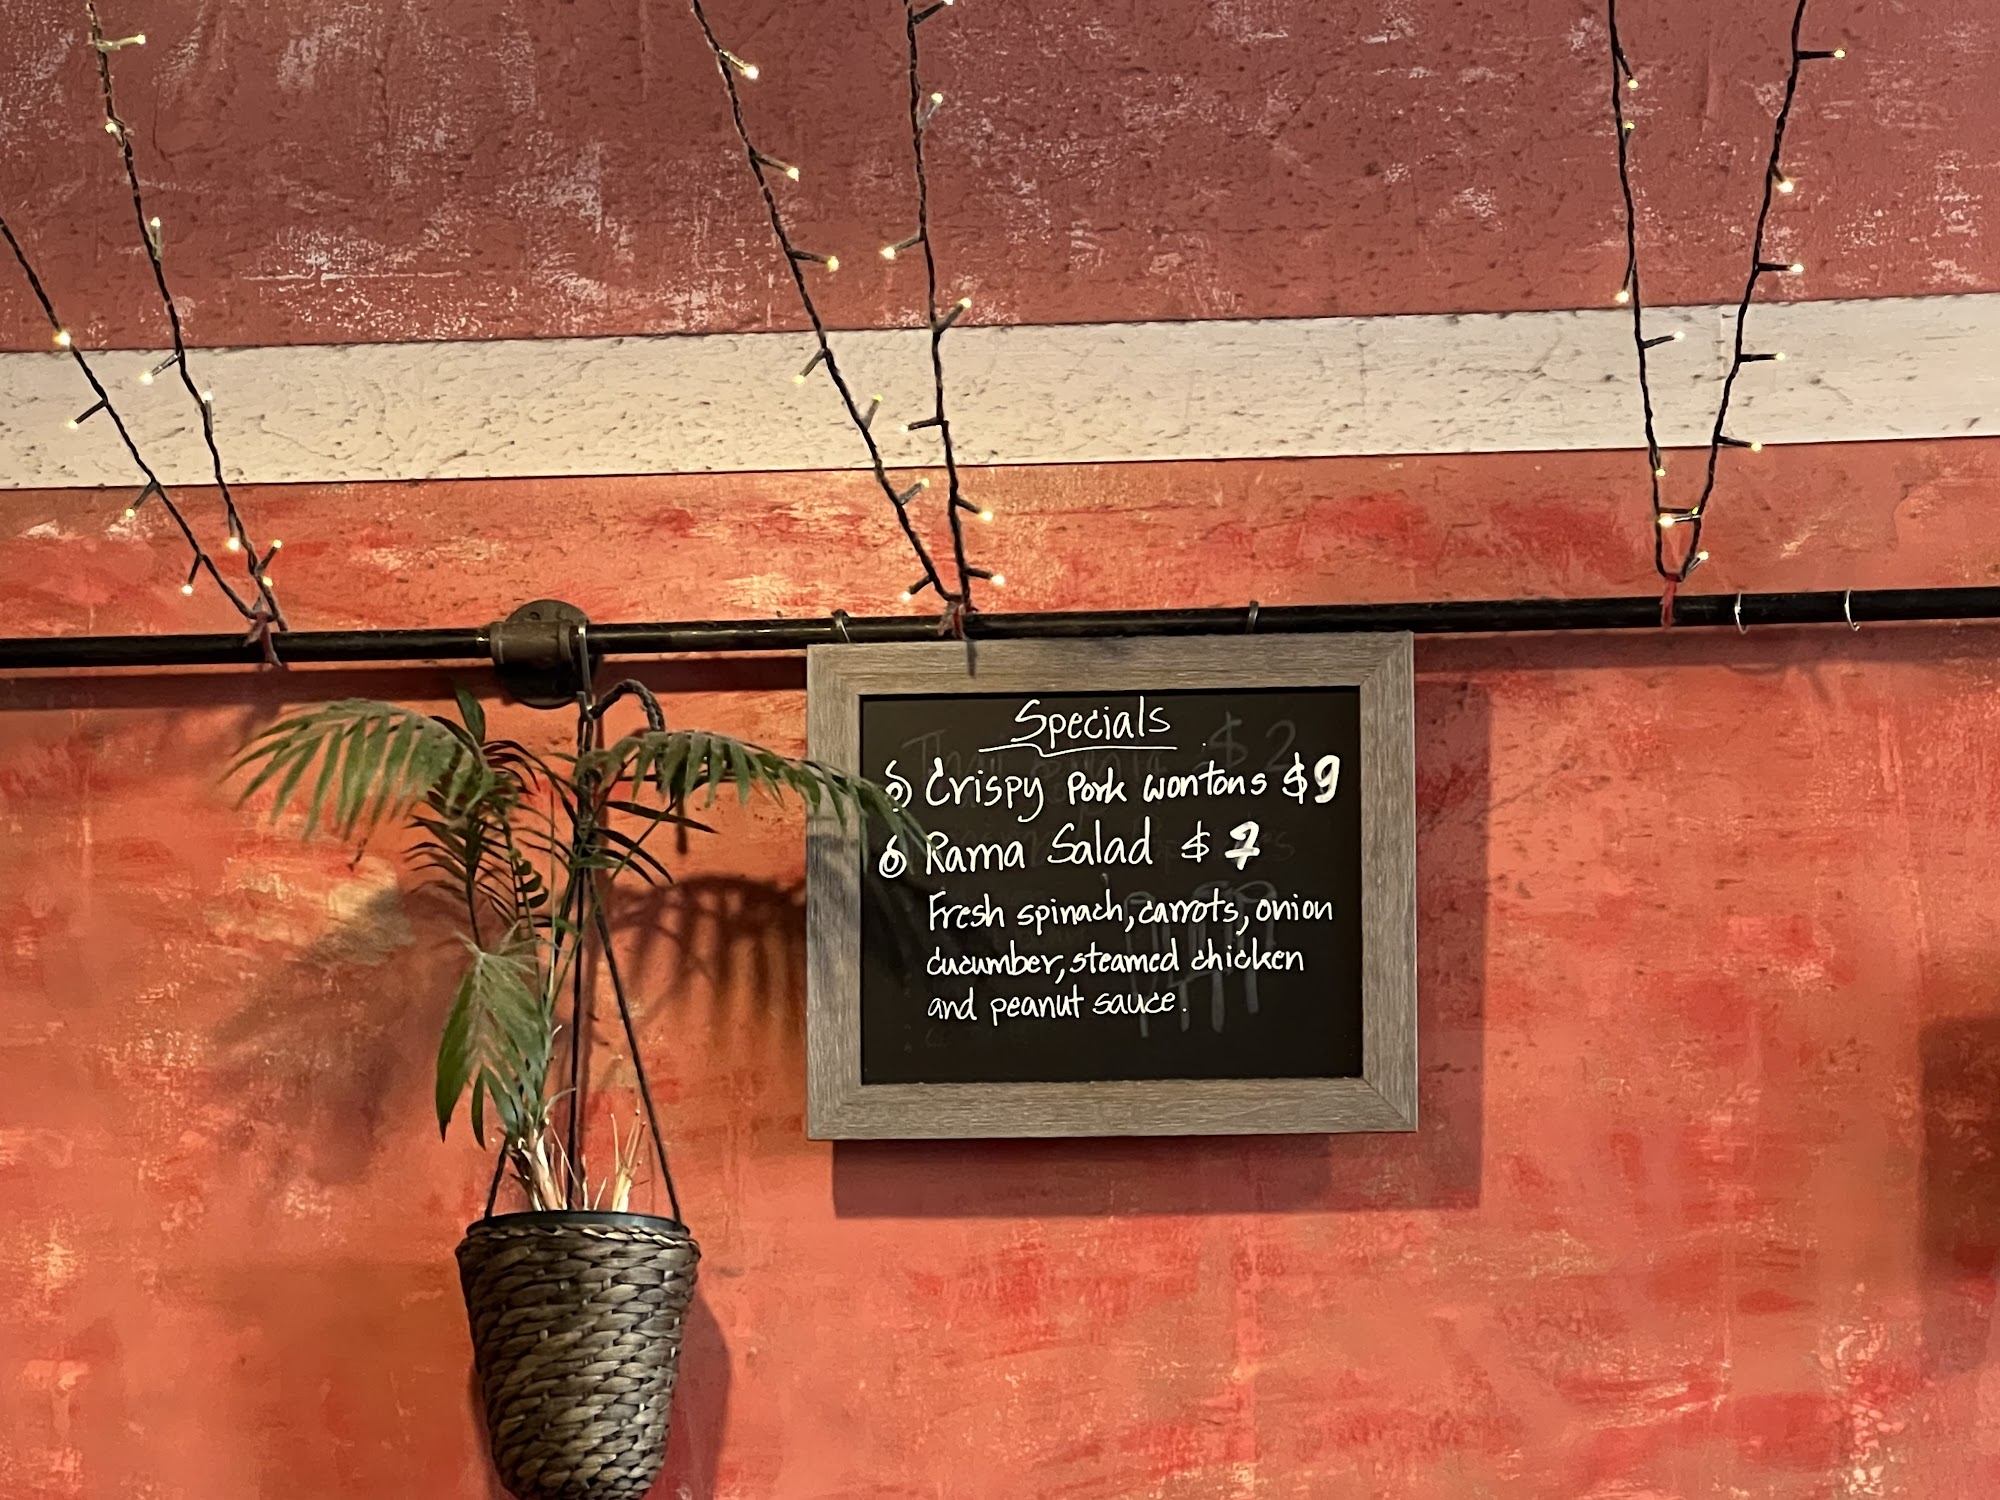 Specials
Crispy Pork wontons $9
Rama Salad $7
Fresh spinach, carrots, onion
cucumber, steamed chicken
and peanut sauce.